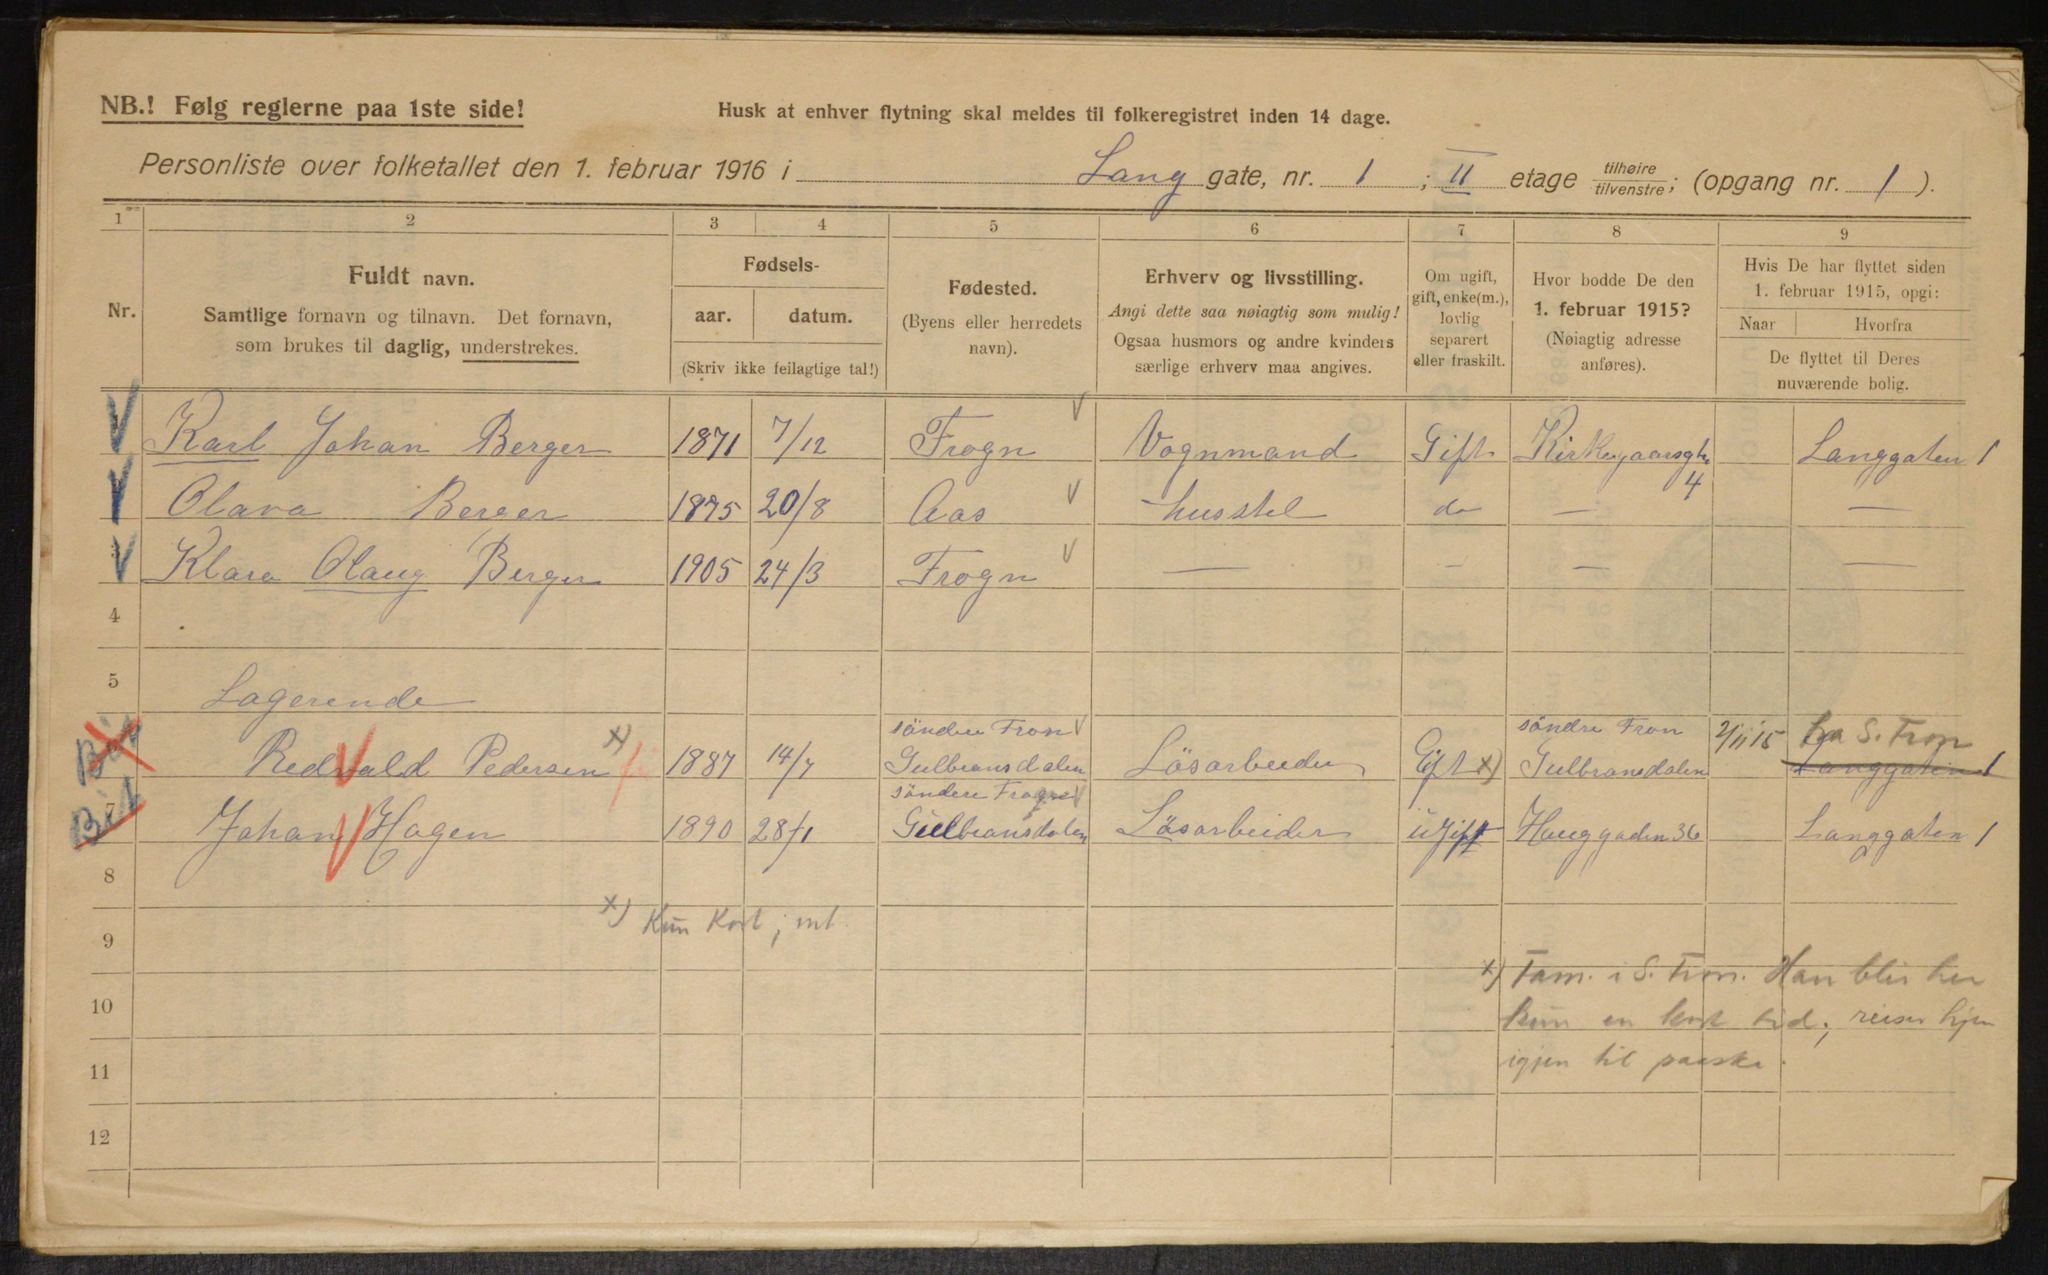 NB.! Følg reglerne paa 1ste side!
Husk at enhver flytning skal meldes til folkeregistret inden 14 dage.
Personliste over folketallet den 1. februar 1916 i Lang gate, nr. 1 ; II etage tilhøire tilvenstre; (opgang nr. 1 ).
1 2 3 4 5 6 7 8 9
Nr.
Fuldt navn.
Samtlige fornavn og tilnavn. Det fornavn,
som brukes til daglig, understrekes.
Fødsels-
aar. datum.
(Skriv ikke feilagtige tal!)
Fødested.
(Byens eller herredets
navn).
Erhverv og livsstilling.
Angi dette saa nøiagtig som mulig!
Ogsaa husmors og andre kvinders
særlige erhverv maa angives.
Om ugift,
gift, enke(m.),
lovlig
separert
eller fraskilt.
Hvor bodde De den
1. februar 1915?
(Nøiagtig adresse
anføres).
Hvis De har flyttet siden
1. februar 1915, opgi:
Naar Hvorfra
De flyttet til Deres
nuværende bolig.
Karl Johan Berger 1871 7/12 Frogn Vognmand Gift 4 Langgaten 1
Olava Berger 1875 20/8 Aas husstel do — —
Klara Olaug Berger 1905 24/3 Frogn — — — —
4
5 Logerende
Redvald Pedersen x) 1887 14/7 søndre Fron Gulbransdalen Løsarbeider Gift x) søndre Fron Gulbransdalen 2/11 15 fra S. Fron Langgaten 1
7 Johan Hagen 1890 28/1 Gulbransdalen Løsarbeider ugift Hauggaden 36 Langgaten 1
8
x) Kun kort, mt.
9
x) Fam. i S. Fron. Han blir her
10
kun en kort tid; reiser hjem
11
igjen til paaske.
12